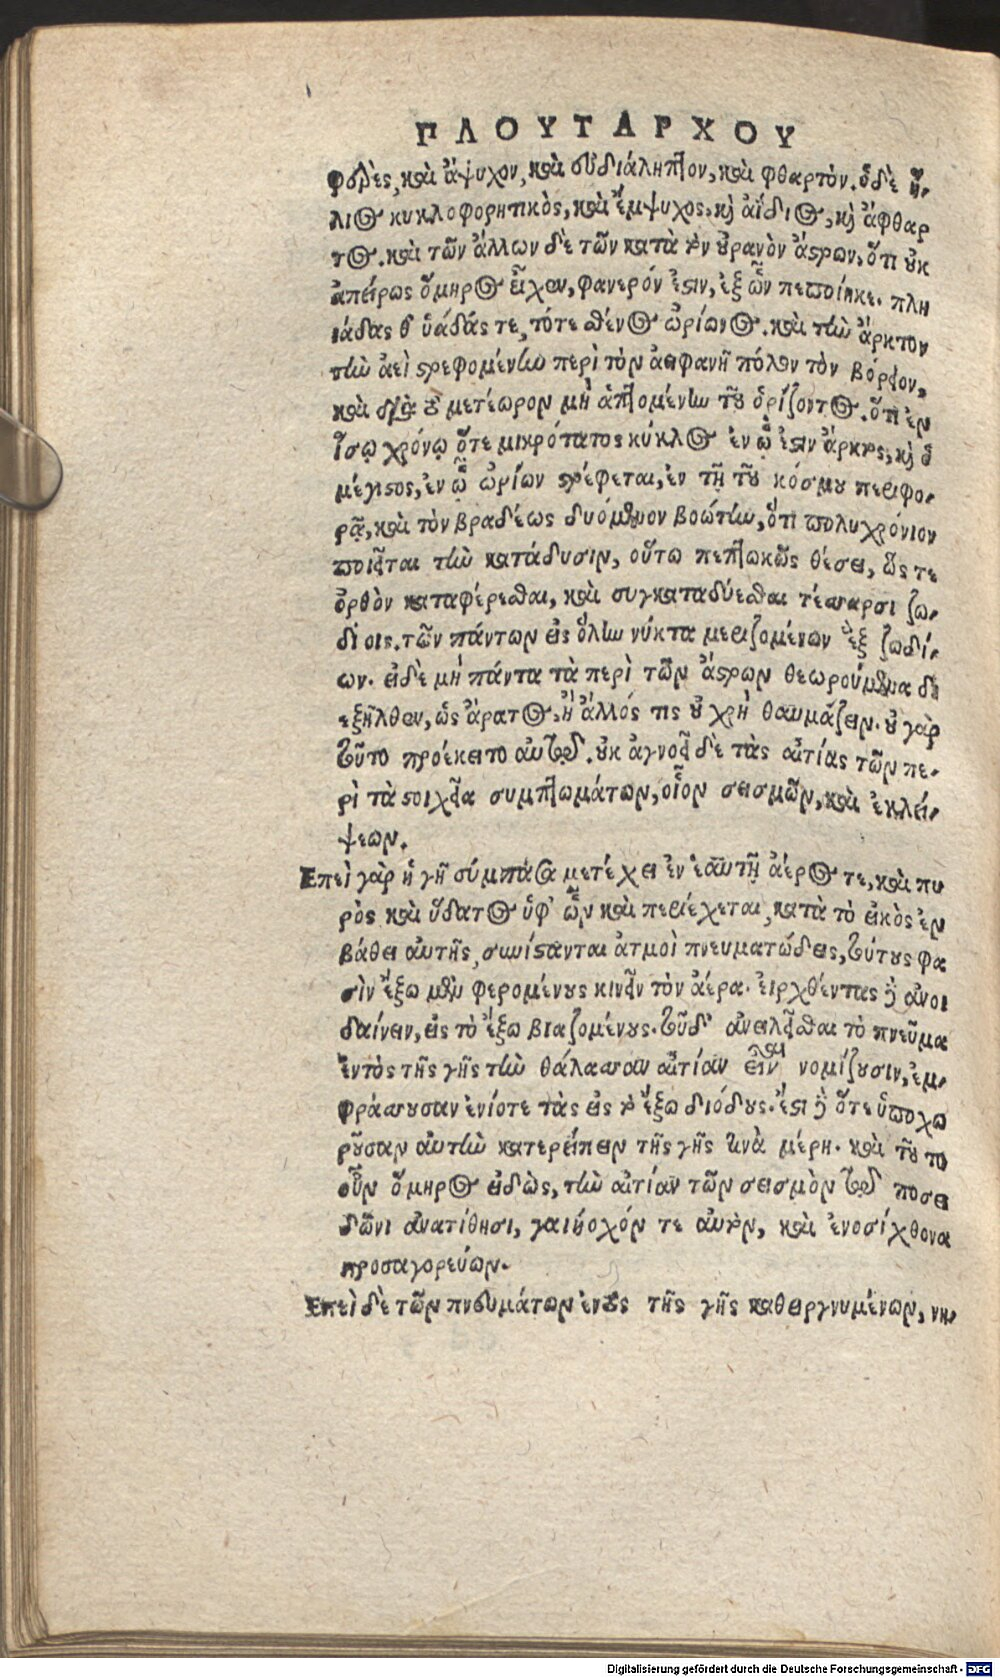 ΠΛΟΥΤΑΡΧΟΥ
φερὲς, καὶ ἄψυχον, καὶ εὐδιάληπτον, καὶ φθαρτὸν. ὁδὲ ἥ-
λιος κυκλοφορητικὸς, καὶ ἔμψυχος, καὶ ἀΐδιος, καὶ ἄφθαρ
τος. καὶ τῶν ἄλλων δὲ τῶν κατὰ τὸν οὐρανὸν ἄστρων, ὅτι οὐκ
ἀπείρως ὅμηρος εἶχεν, φανερόν ἐστιν, ἐξ ὧν πεποίηκε. πλη
ϊάδας θ' ὑάδάς τε, τότε σθένος ὠρίωνος. καὶ τὴν ἄρκτον
τὴν ἀεὶ στρεφομένην περὶ τὸν ἀειφανῆ πόλον τὸν βόρειον,
καὶ διὰ τὸ μετέωρον μὴ ἁπτομένην τοῦ ὁρίζοντος. ὅτι ἐν
ἴσῳ χρόνῳ ὅτε μικρότατος κύκλος ἐν ᾧ ἐστιν ἄρκτος, καὶ ὁ
μέγιστος, ἐν ᾧ ὠρίων στρέφεται, ἐν τῇ τοῦ κόσμου περιφο-
ρᾷ, καὶ τὸν βραδέως δυόμενον βοώτην, ὅτι πολυχρόνιον
ποιεῖται τὴν κατάδυσιν, οὕτω πεπτωκὼς θέσει, ὥς τε
ὀρθὸν καταφέρεσθαι, καὶ συγκαταδύεσθαι τέσσαρσι ζω-
δίοις. τῶν πάντων εἰς ὅλην νύκτα μεριζομένων ἓξ ζωδί-
ων. εἰδὲ μὴ πάντα τὰ περὶ τῶν ἄστρων θεωρούμενα δι
εξῆλθεν, ὡς ἄρατος, ἢ ἄλλός τις οὐ χρὴ θαυμάζειν. οὐ γὰρ
τοῦτο προέκειτο αὐτῷ. οὐκ ἀγνοεῖ δὲ τὰς αἰτίας τῶν πε-
ρὶ τὰ στοιχεῖα συμπτωμάτων, οἷον σεισμῶν, καὶ ἐκλεί-
ψεων.
Επεὶ γὰρ ἡ γῆ σύμπασα μετέχει ἐν ἑαυτῇ ἀέρος τε, καὶ πυ
ρὸς καὶ ὕδατος ὑφ' ὧν καὶ περιέχεται, κατὰ τὸ εἰκὸς ἐν
βάθει αὐτῆς, συνίστανται ἀτμοὶ πνευματώδεις, τούτους φα
σὶν ἔξω μὲν φερομένους κινεῖν τὸν ἀέρα. εἱρχθέντας δὲ ἀνοι
δαίνειν, εἰς τὸ ἔξω βιαζομένους. τοῦδ' ἀνειλεῖσθαι τὸ πνεῦμα
ἐντὸς τῆς γῆς τὴν θάλασσαν αἰτίαν εἶναι νομίζουσιν, ἐμ-
φράσσουσαν ἐνίοτε τὰς εἰς τὸ ἔξω διόδους. ἔστι δὲ ὅτε ὑποχω
ροῦσαν αὐτὴν κατερείπειν τῆς γῆς τινὰ μέρη. καὶ τοῦ το
οὖν ὅμηρος εἰδὼς, τὴν αἰτίαν τῶν σεισμὸν τῷ ποσει
δῶνι ἀνατίθησι, γαιήοχόν τε αὐτὸν, καὶ ἐνοσίχθονα
προσαγορεύων.
Επεὶ δὲ τῶν πνευμάτων ἐντὸς τῆς γῆς καθειργνυμένων, νη-
Digitalisierung gefördert durch die Deutsche Forschungsgemeinschaft - DFG